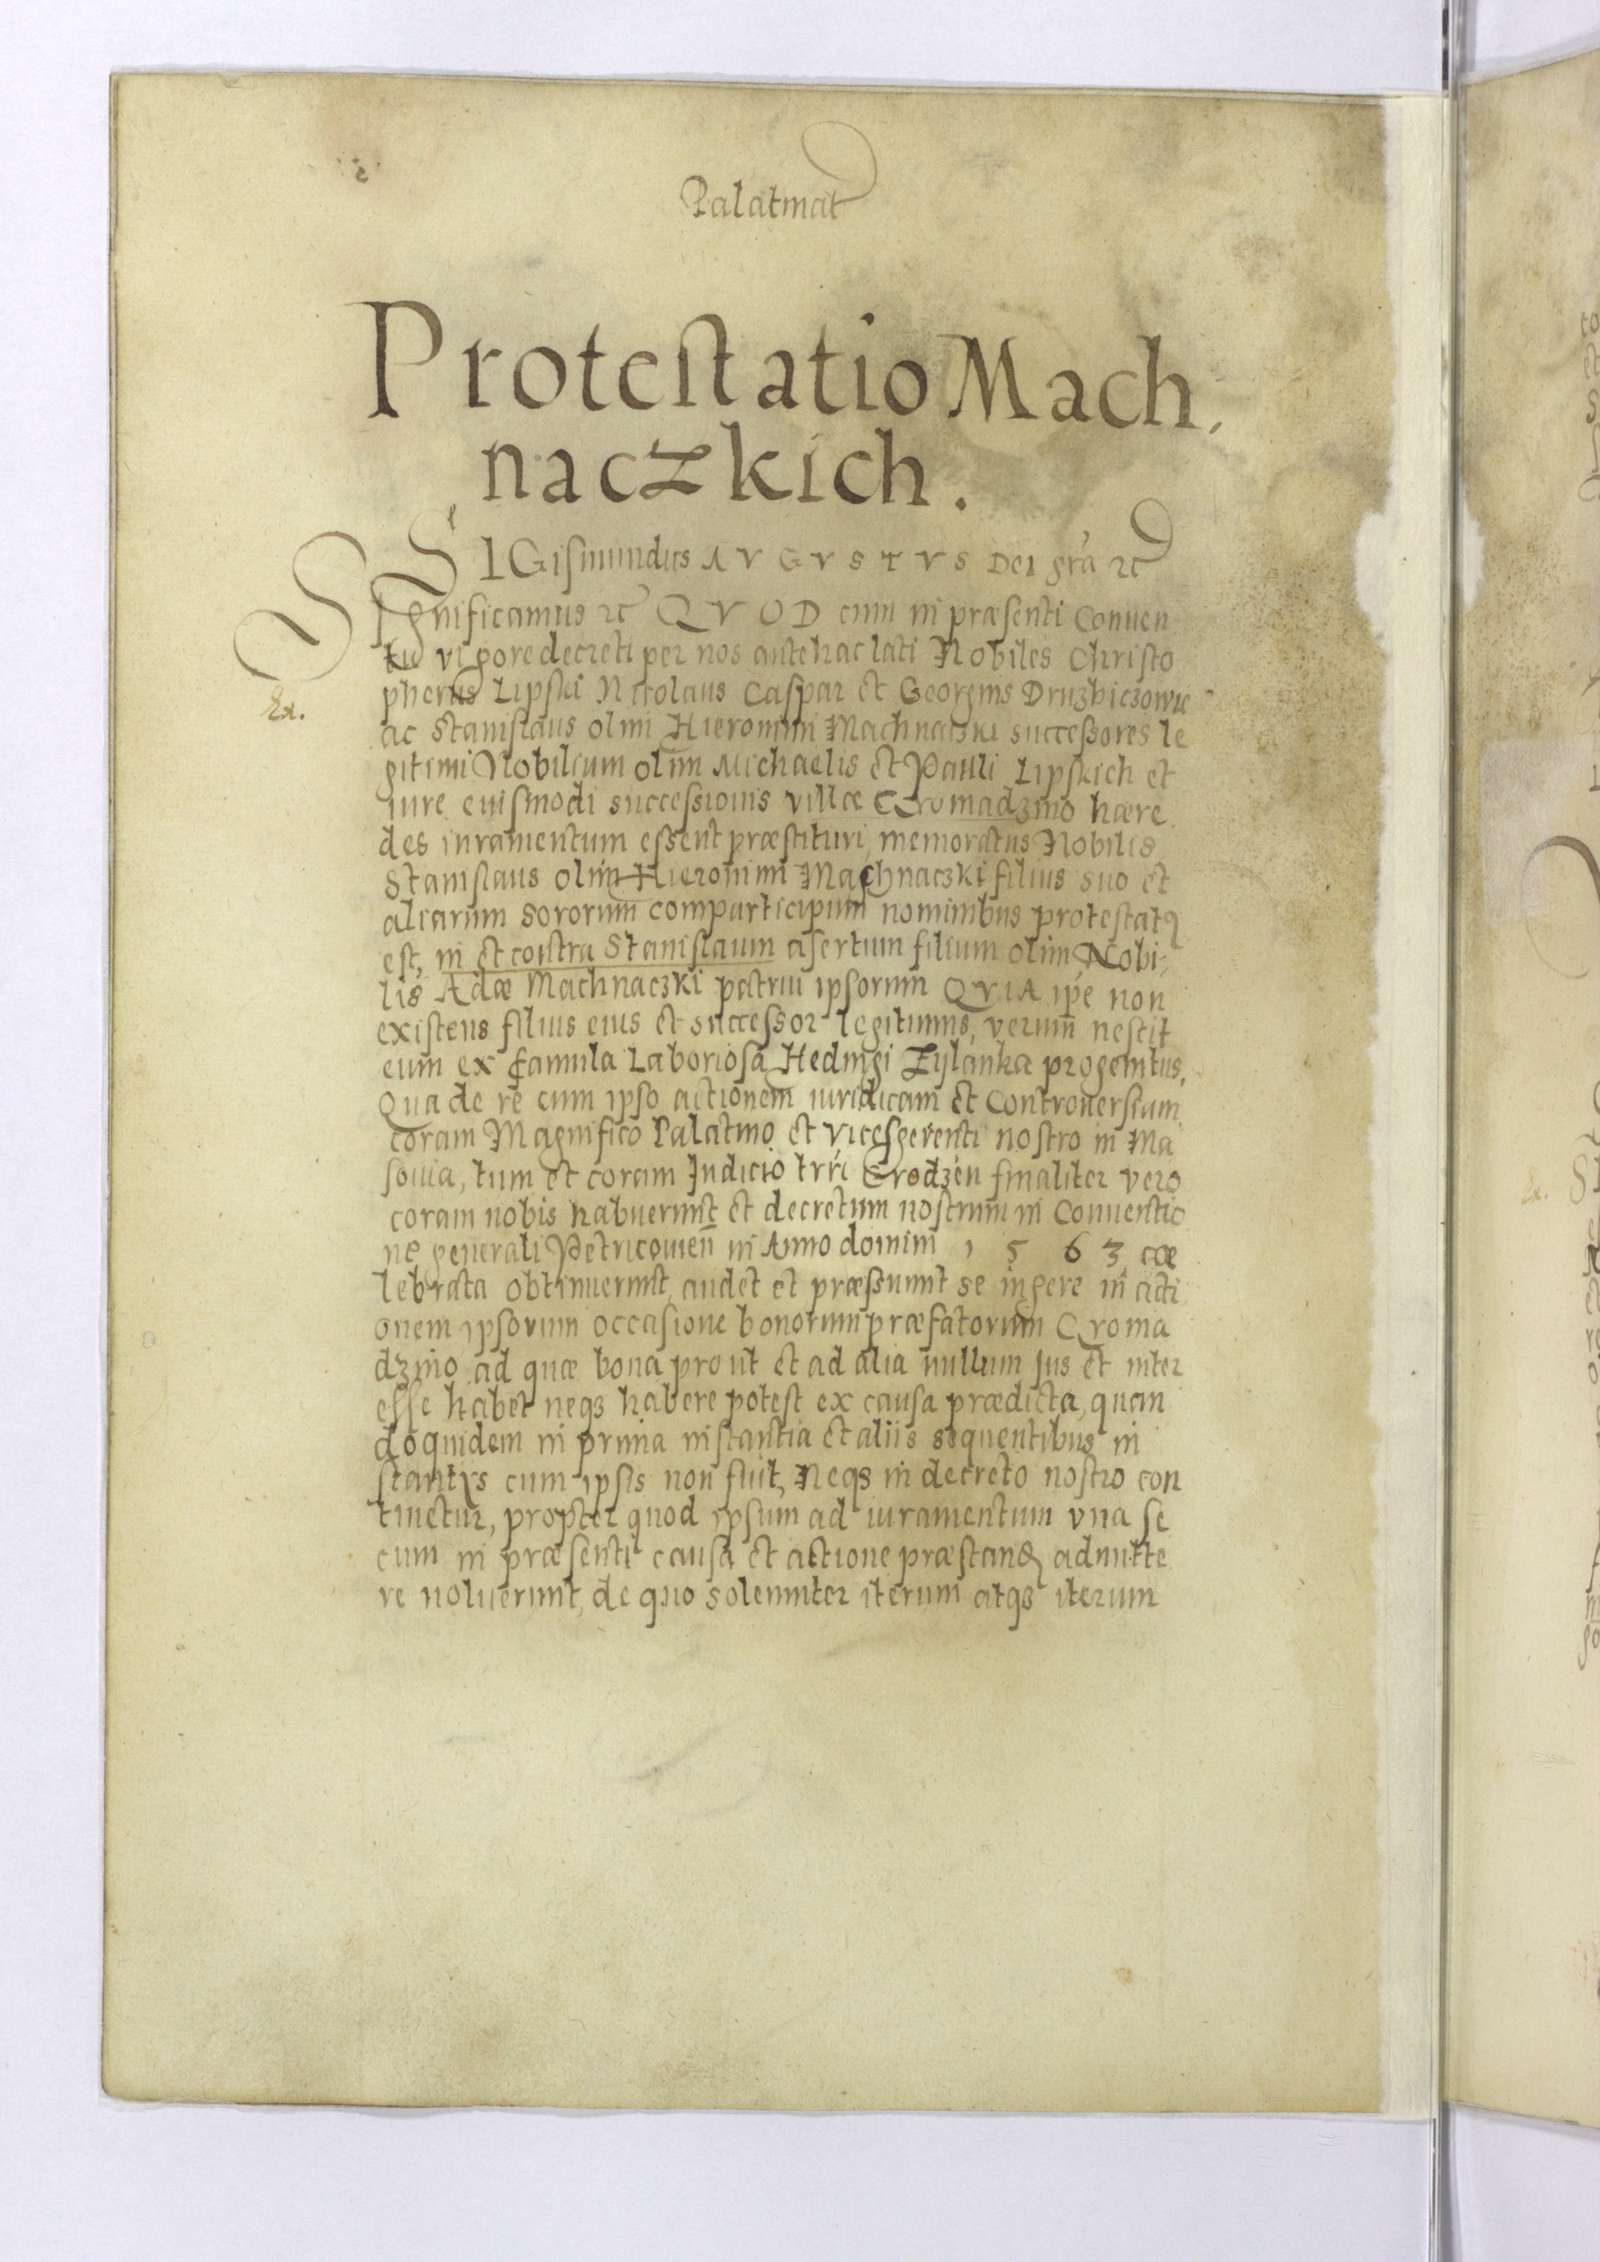 Palatinat
Protestatio Mach,
naczkich.
SIGismundus AVGVSTVS Dei gra͠ ꝛc
Significamus ꝛc QVOD cum in præsenti Conuen
tu vigore decreti per nos antehac lati Nobiles Christo
pherus Lipski Nicolaus Caspar et Georgius Druzbiczowie
ac Stanislaus olim Hieronimi Machnatski successores le
gitimi Nobilium olim Michaelis et Pauli Lipskich et
iure euismodi successionis villæ Cromadzino hære
des iuramentum essent præstituri, memoratus Nobilis
Stanislaus olim Hieronimi Machnaczki filius suo et
aliarum sororum comparticipum nominibus protestatꝰ
est, in et contra Stanislaum asertum filium olim Nobi-
lis Adæ Machnaczki patrui ipsorum QVIA ip̃e non
existens filius eius et successor legitimus, verum nescit
eum ex famula Laboriosa Hedingi Zylanka progenitus,
Qua de re cum ipso actionem iuridicam et Controuersiam
coram Magnifico Palatino et Vicesgerenti nostro in Ma
souia, tum et coram Iudicio trr̃i Grodzen͂ finaliter vero
coram nobis habuerunt et decretum nostrum in Conuentio
ne generali Petricouien̄ in Anno domini 1 5 6 3 cœ
lebrata obtinuerunt, audet et præssumit se ingere in acti
onem ipsorum occasione bonorum præfatorum Croma
dzino ad quæ bona prout et ad alia nullum Ius et inter
esse habet neqꝫ habere potest ex causa prædicta, quan
doquidem in prima instantia et aliis sequentibus in
stantys cum ipsis non fuit, Neqꝫ in decreto nostro con
tinetur, propter quod ipsum ad iuramentum vna se
cum in præsenti causa et actione præstand͂ admitte
re noluerunt, de quo solenniter iterum atqꝫ iterum
Ex.